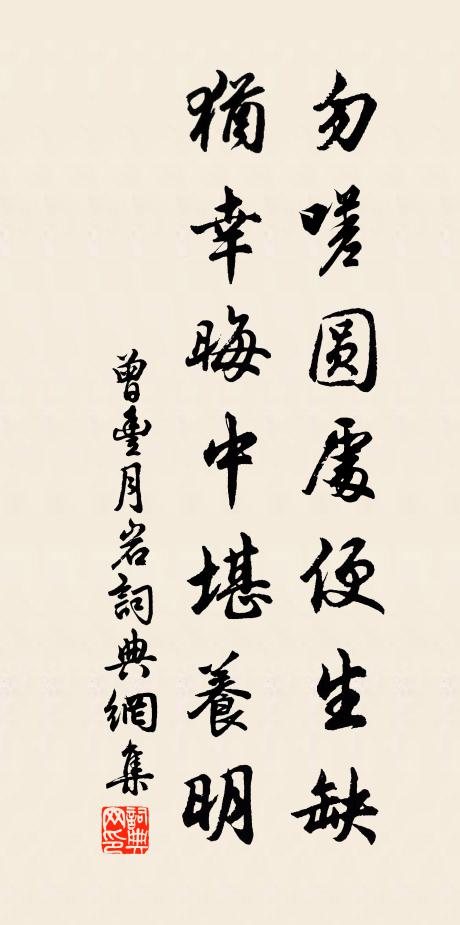 勿嗟圆處便生缺
猶幸晦中堪養明
曾豐月岩詞典網集
詞典网印